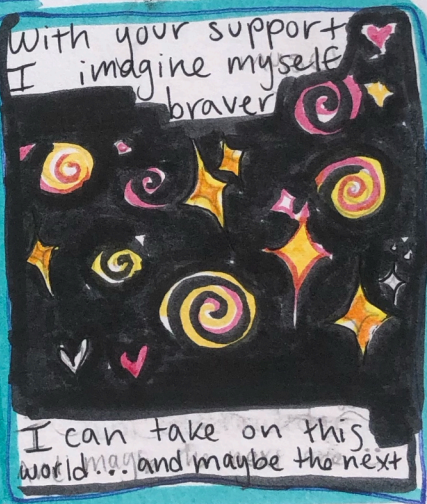 With your support
I imagine myself
braver
I can take on this
world... and maybe the next